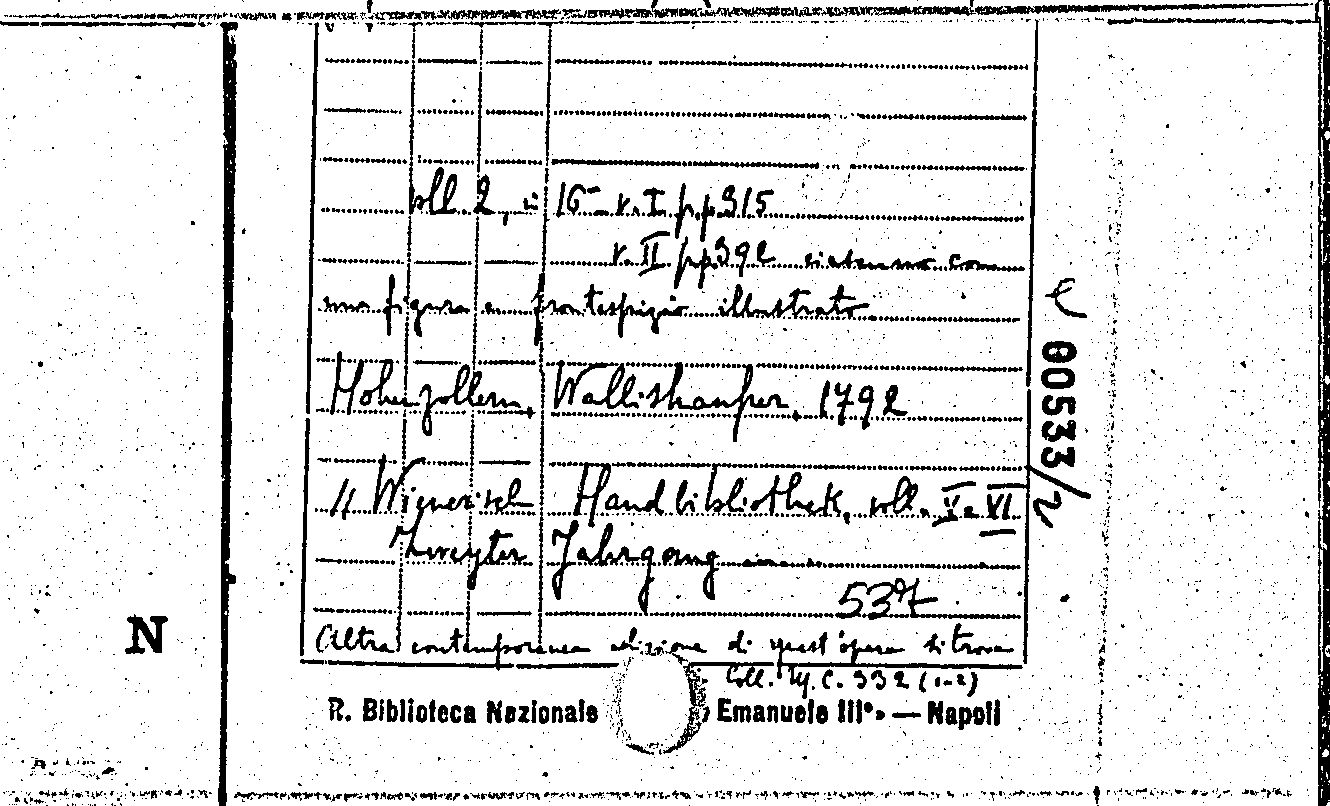 voll 2, in 16° v. I pp. 315
v. II pp. 392 ciascuno con
una figura e frontespizio illustrato
Hohenzollern, Wallishauser, 1792
// Wienerisch Handbibliothek, voll. V e VI
Zweyter Jahrgang
537
Altra contemporanea edizione di quest'opera si trova
Coll. 332 (1-2)
R. Biblioteca Nazionale Emanuele III°» — Napoli
00533/2
N